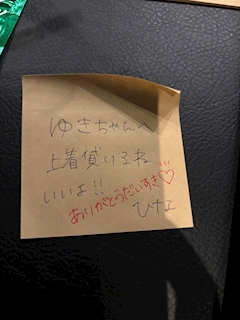 ゆきちゃんへ
上着貸けるね
いいよ!!
ありがとうだいすき♡
ひナエ